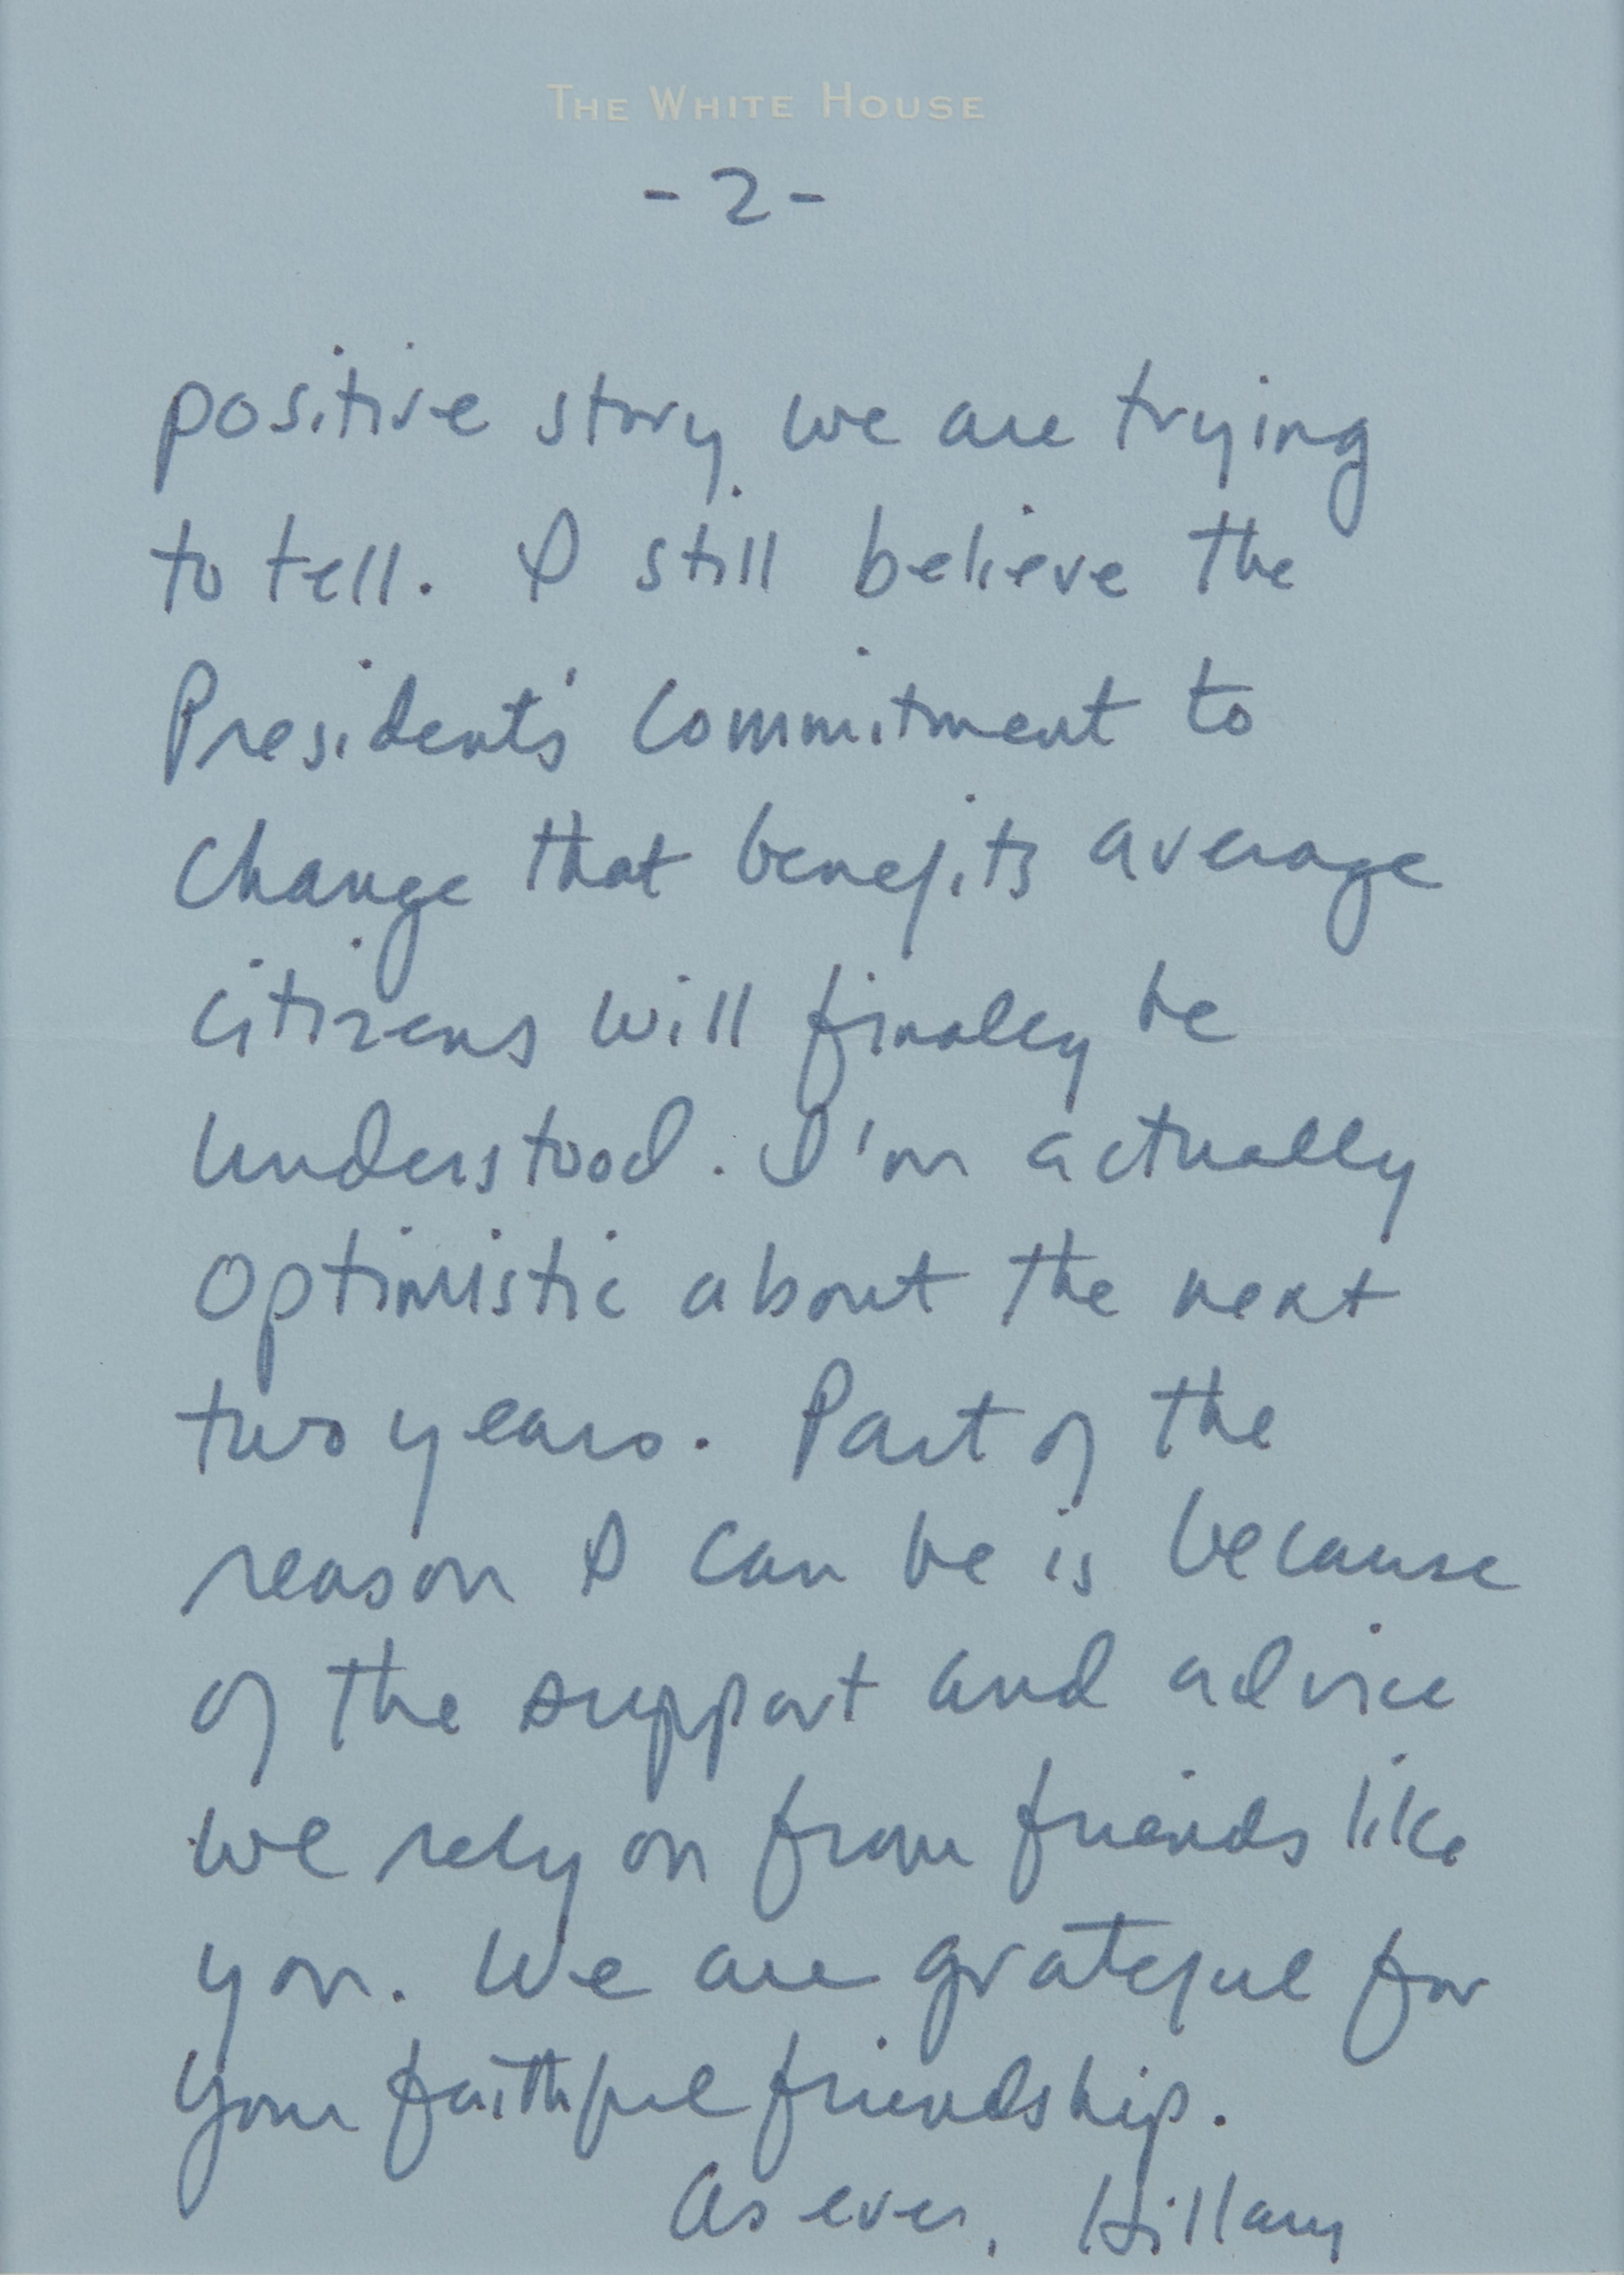 THE WHITE HOUSE
- 2 -
positive story we are trying
to tell. I still believe the
President's commitment to
change that benefits average
citizens will finally be
understood. I'm actually
optimistic about the next
two years. Part of the
reason I can be is because
of the support and advice
we rely on from friends like
you. We are grateful for
your faithful friendship.
As ever, Hillary